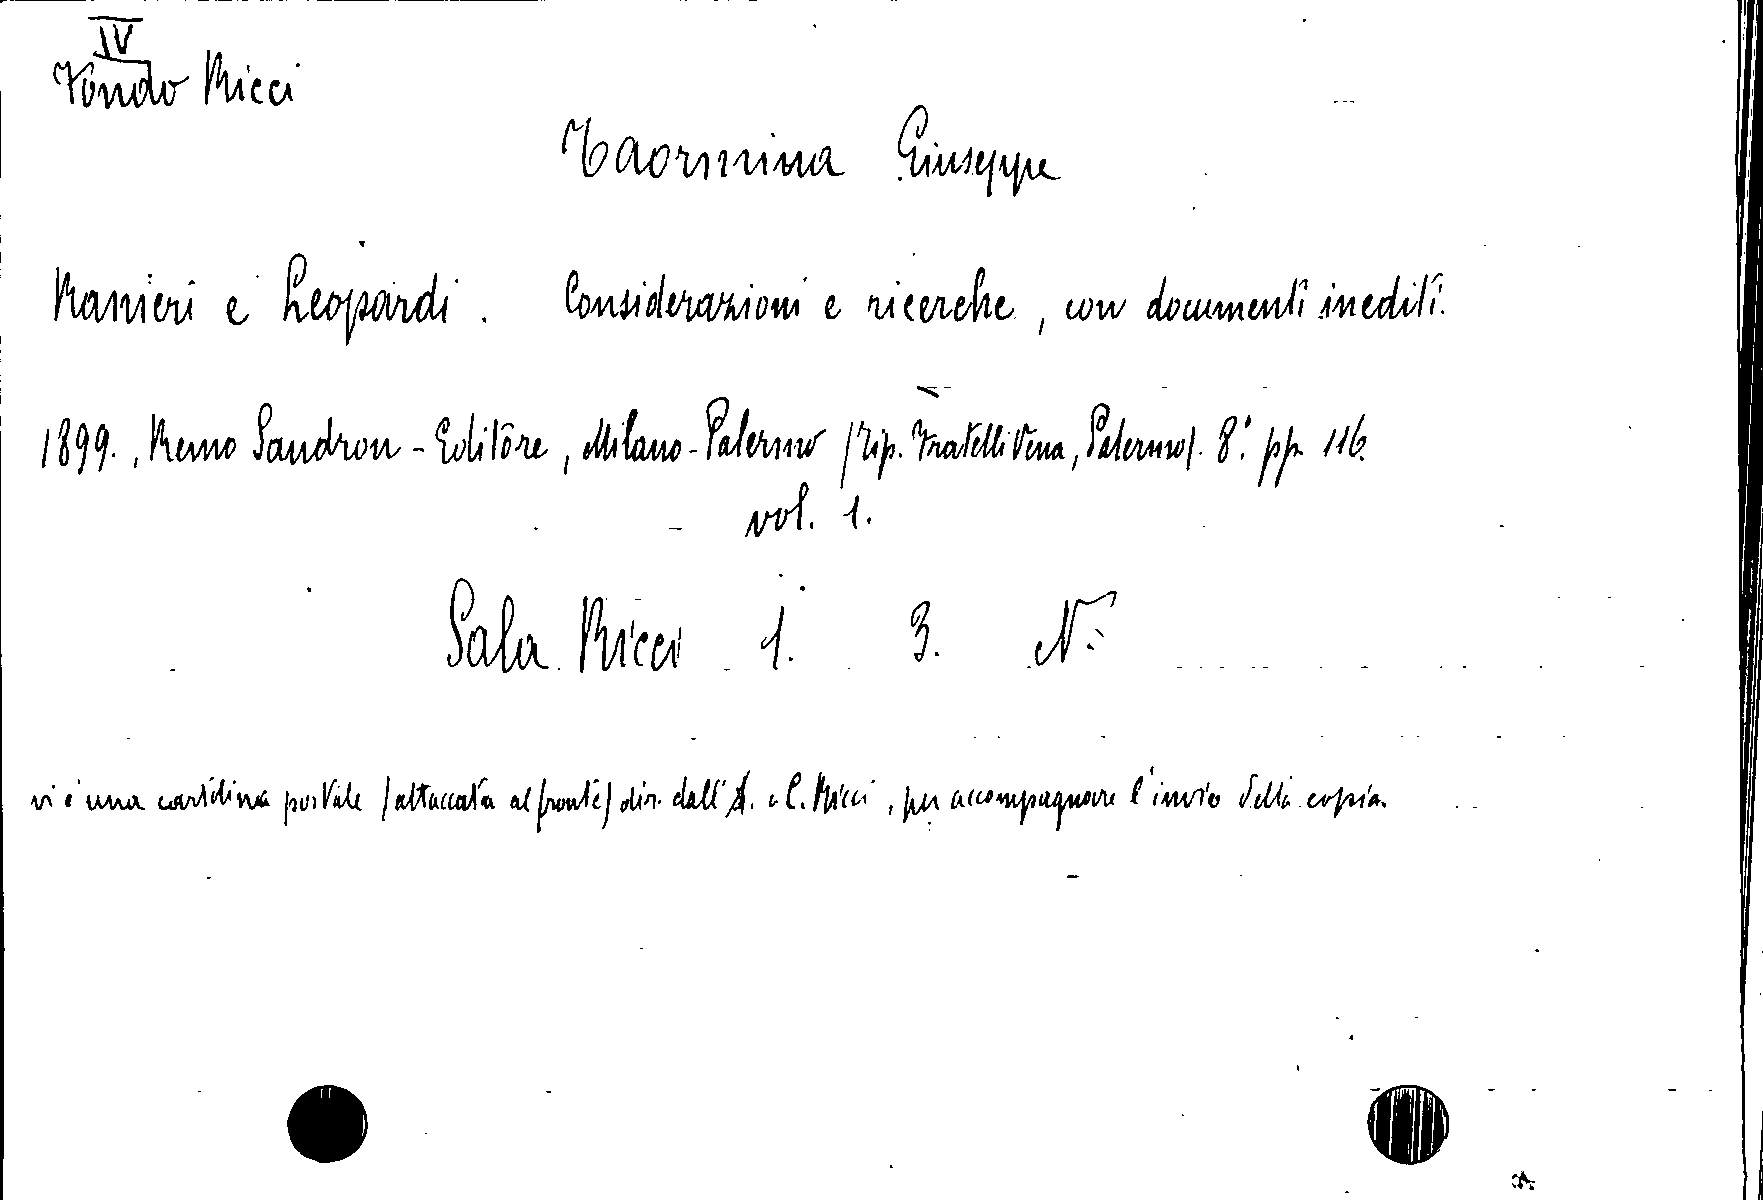 IV
Fondo Ricci
Taormina Giuseppe
Ranieri e Leopardi. Considerazioni e ricerche, con documenti inediti.
1899., Remo Sandron - Editore, Milano - Palermo (Tip. Fratelli Vena, Palermo). 8.° pp. 116.
vol. 1.
Sala Ricci 1. 3. N.°
vi è una cartolina postale (attaccata al fronte) dir. dall'A. a C. Ricci, per accompagnare l'invio della copia.